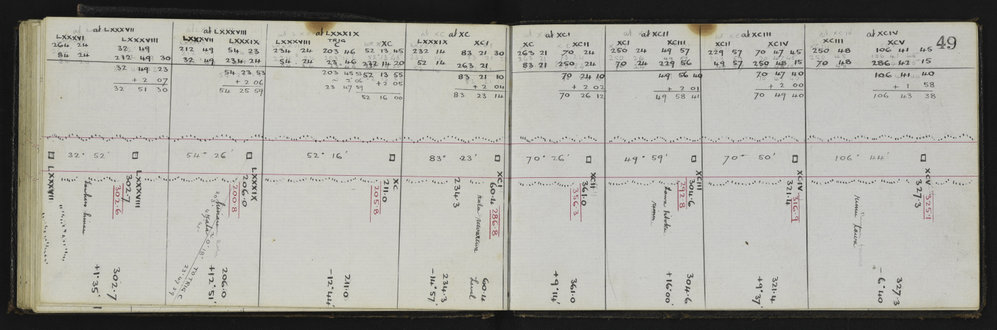 49
at LXXXVII
LXXXVI LXXXVIII
264 24 32 49
84 24 212 49 30
32 49 23
+ 2 07
32 51 30
at LXXXVIII
LXXXVII LXXXIX
212 49 54 23
32 49 234 24
54 23 53
+ 2 06
54 25 59
at LXXXIX
LXXXVIII TRIG XC
234 24 203 46 52 13 45
54 24 23 46 232 14 20
203 45 52 13 55
+ 2 05
23 47 59
52 16 00
at XC
LXXXIX XCI
232 14 83 21 30
52 14 263 21
83 21 10
+ 2 04
83 23 14
at XCI
XC XCII
263 21 70 24
83 21 250 24
70 24 10
+ 2 02
70 26 12
at XCII
XCI XCIII
250 24 49 57
70 24 229 56
49 56 40
+ 2 01
49 58 41
at XCIII
XCII XCIV
229 57 70 47 45
49 57 250 48 15
70 47 40
+ 2 00
70 49 40
at XCIV
XCIII XCV
250 48 106 41 45
70 48 286 42 15
106 41 40
+ 1 58
106 43 38
32° 52'
54° 26'
52° 16'
83° 23'
70° 26'
49° 59'
70° 50'
106° 44'
LXXXVII
LXXXVIII
302.7
302.6
302.7
+1°35'
LXXXIX
206.0
200.8
TO TRIG C
23 47 59
206.0
+12°51'
XC
211.0
205.8
211.0
-12°44'
XCI
60.4
286.8
234.3
60.4
Level
234.3
-14°57'
XCII
361.0
356.3
361.0
+9°14'
XCIII
304.6
292.8
304.6
+16°00'
XCIV
321.4
316.9
321.4
+9°37'
XCV
327.3
325.1
327.3
-6°40'